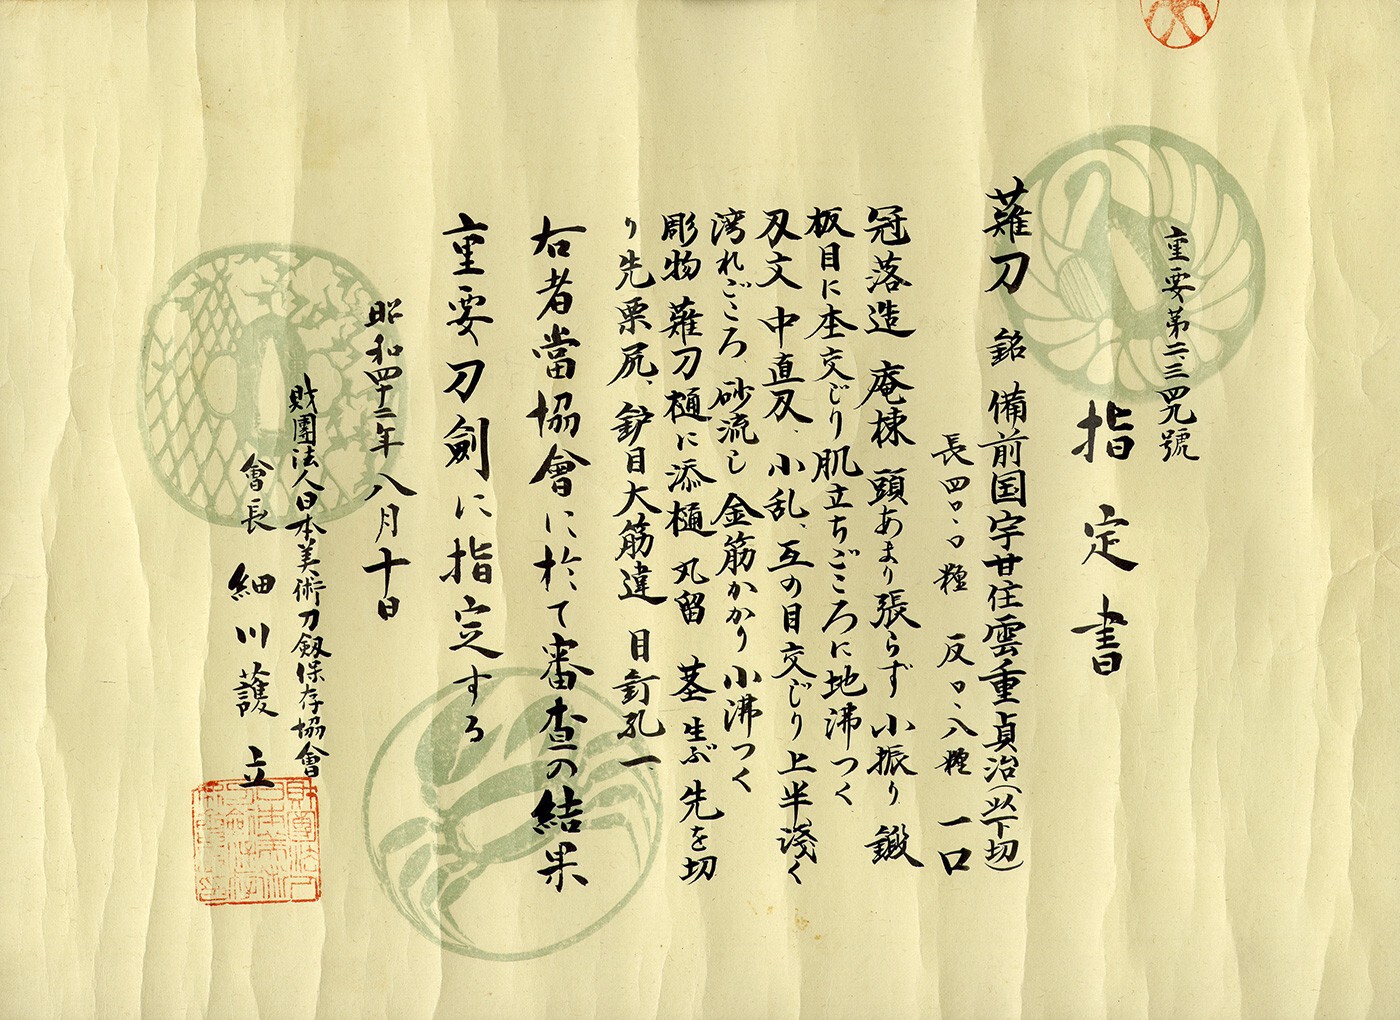 重要第二、三四九號
指定書
薙刀 銘 備前国宇甘住雲重貞治(以下切)
長四〇、〇糎 反〇、八糎 一口
冠落造 庵棟 頭あまり張らず 小振り 鍛
板目に杢交じり肌立ちごころに地沸つく
刄文 中直刄、小乱、互の目交じり上半淺く
湾れごころ、砂流し 金筋かかり 小沸つく
彫物 薙刀樋に添樋 丸留 茎 生ぶ 先を切
り先栗尻、鈩目大筋違 目釘孔一
右者當協會に於て審査の結果
重要刀剣に指定する
昭和四十二年八月十日
財團法人日本美術刀剱保存協會
會長 細川護立